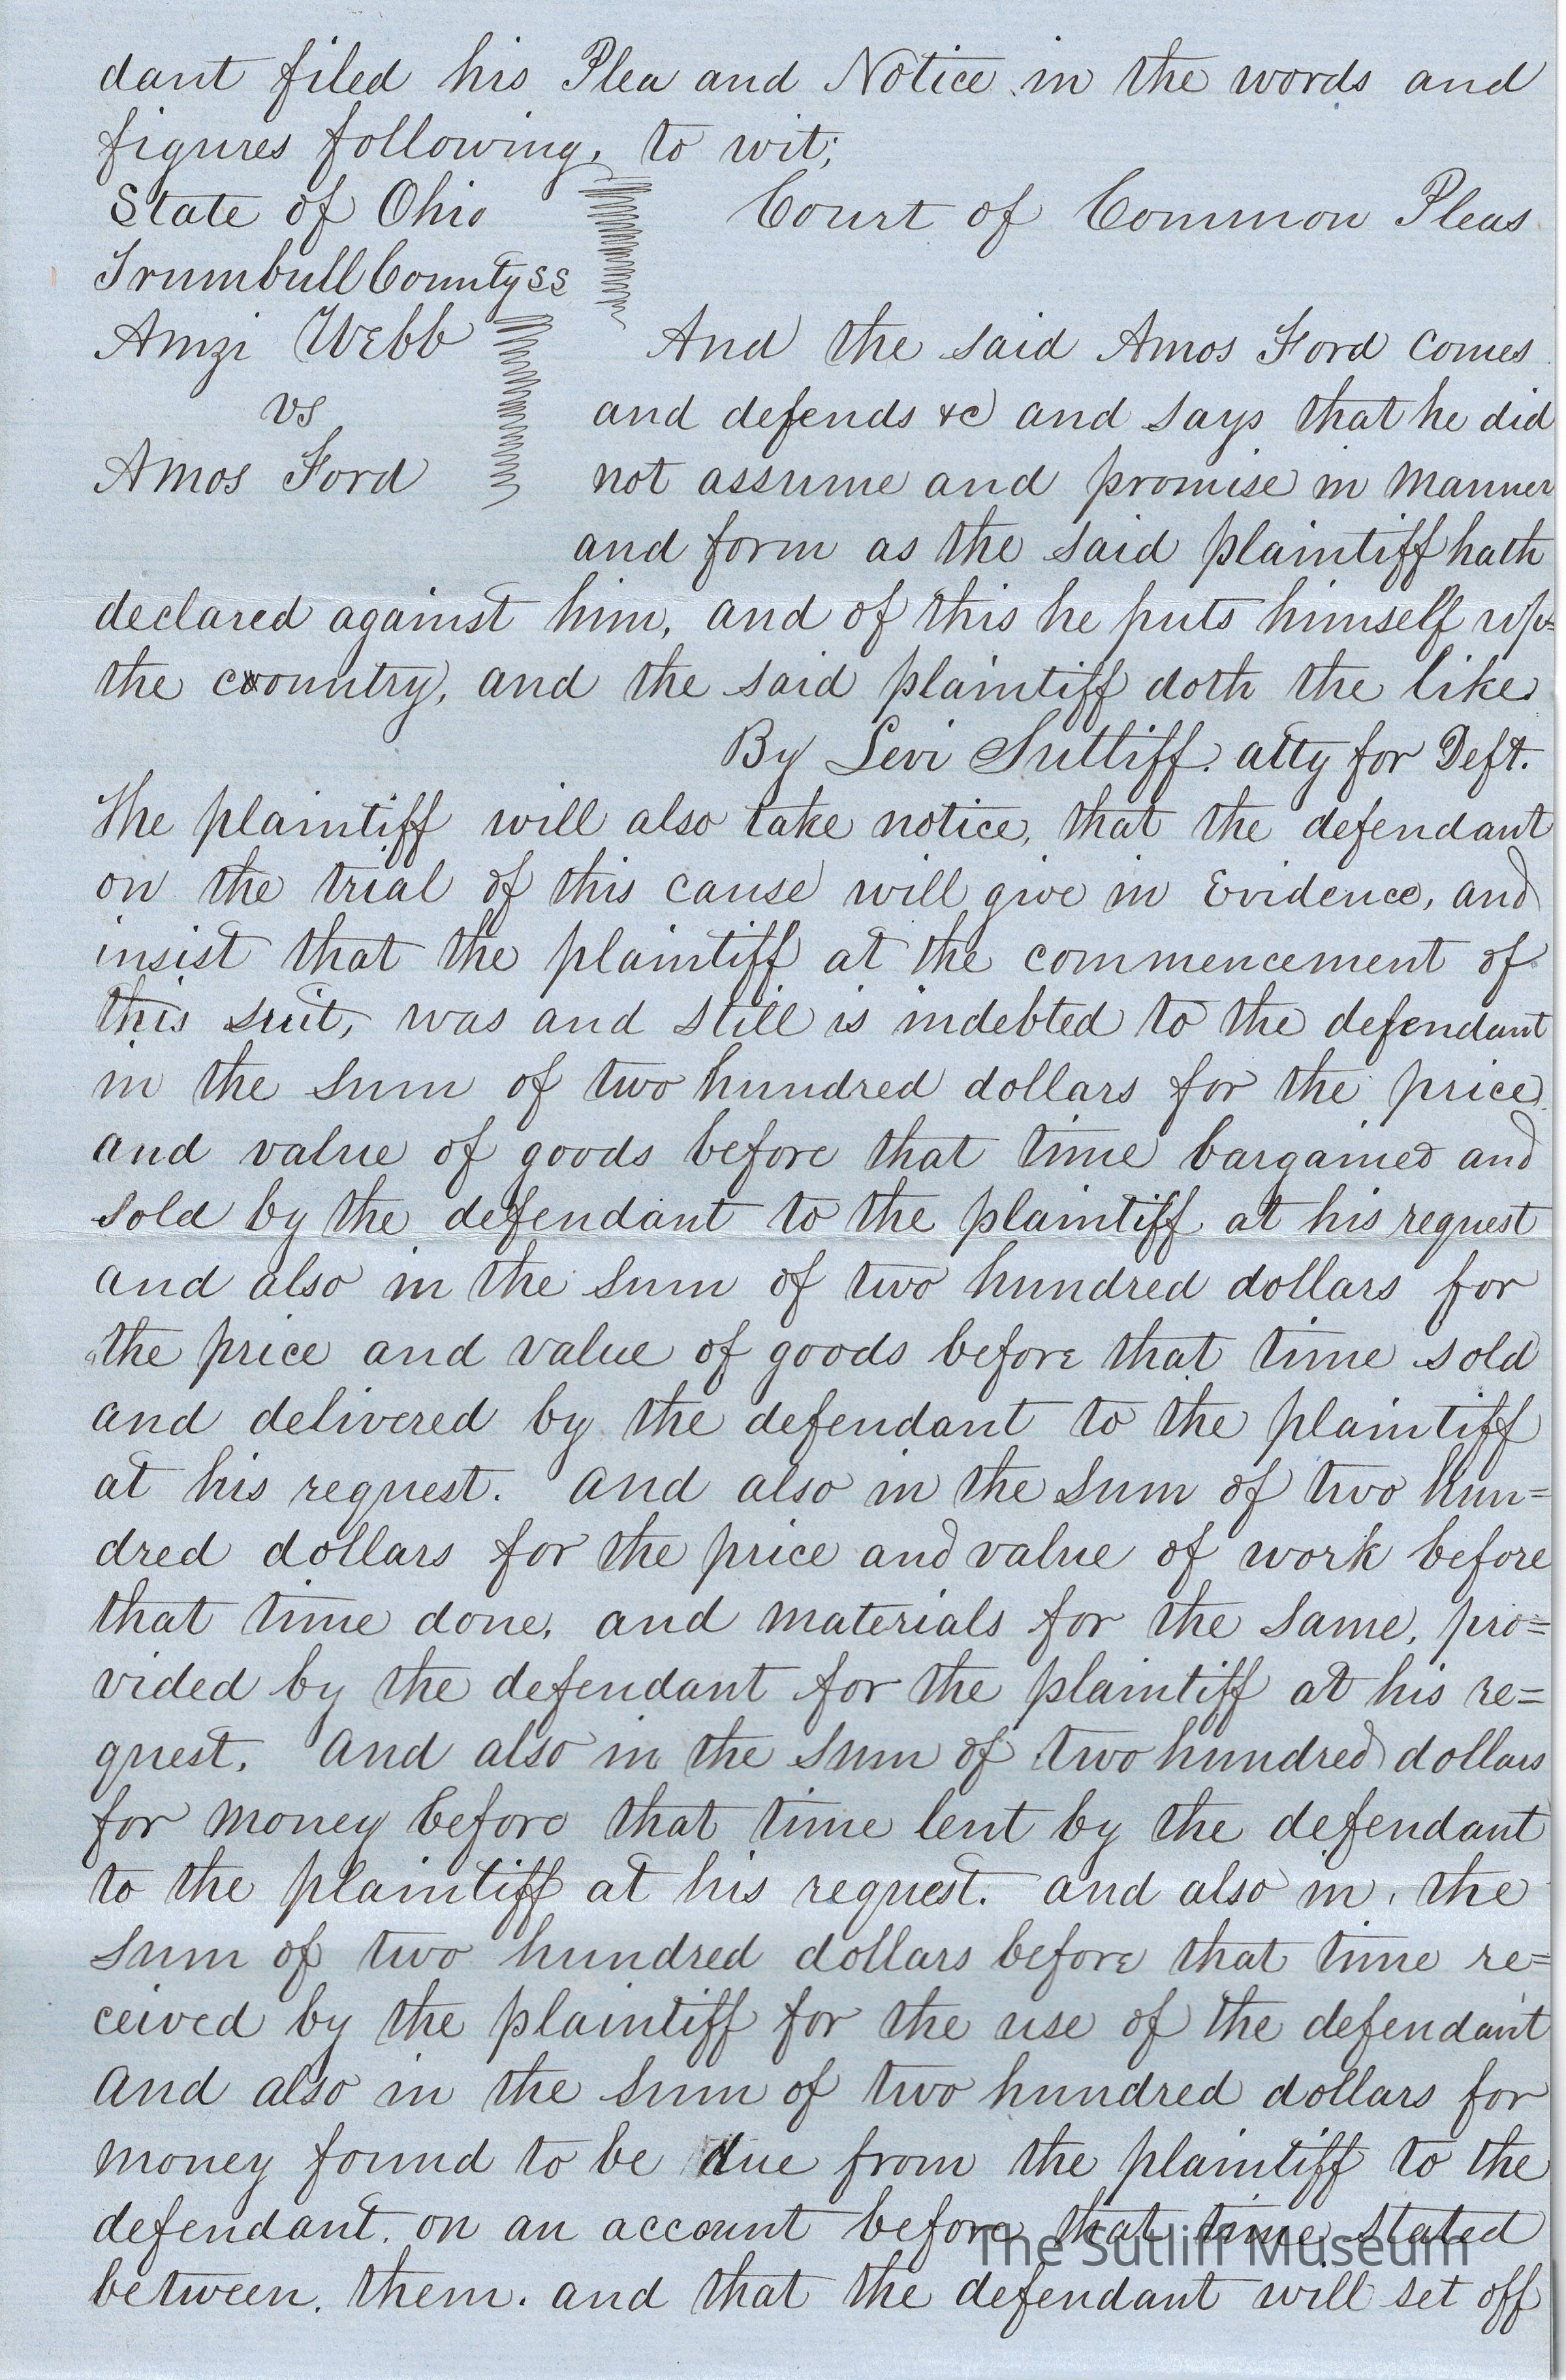 dant filed his Plea and Notice in the words and
figures following, to wit;
State of Ohio
Trumbull County ss
Court of Common Pleas
Amzi Webb
vs
Amos Ford
And the said Amos Ford comes
and defends &c and says that he did
not assume and promise in manner
and form as the said plaintiff hath
declared against him, and of this he puts himself up=
the country, and the said plaintiff doth the like
By Levi Sutliff. atty for Deft.
The plaintiff will also take notice, that the defendant
on the trial of this cause will give in Evidence, and
insist that the plaintiff at the commencement of
this suit, was and still is indebted to the defendant
in the sum of two hundred dollars for the price
and value of goods before that time bargained and
sold by the defendant to the plaintiff at his request
and also in the sum of two hundred dollars for
the price and value of goods before that time sold
and delivered by the defendant to the plaintiff
at his request. And also in the sum of two hun=
dred dollars for the price and value of work before
that time done, and materials for the same, pro=
vided by the defendant for the plaintiff at his re=
quest. And also in the sum of two hundred dollars
for money before that time lent by the defendant
to the plaintiff at his request. and also in the
sum of two hundred dollars before that time re=
ceived by the plaintiff for the use of the defendant
And also in the sum of two hundred dollars for
money found to be due from the plaintiff to the
defendant. on an account before that time stated
between. them. and that the defendant will set off
The Sutliff Museum